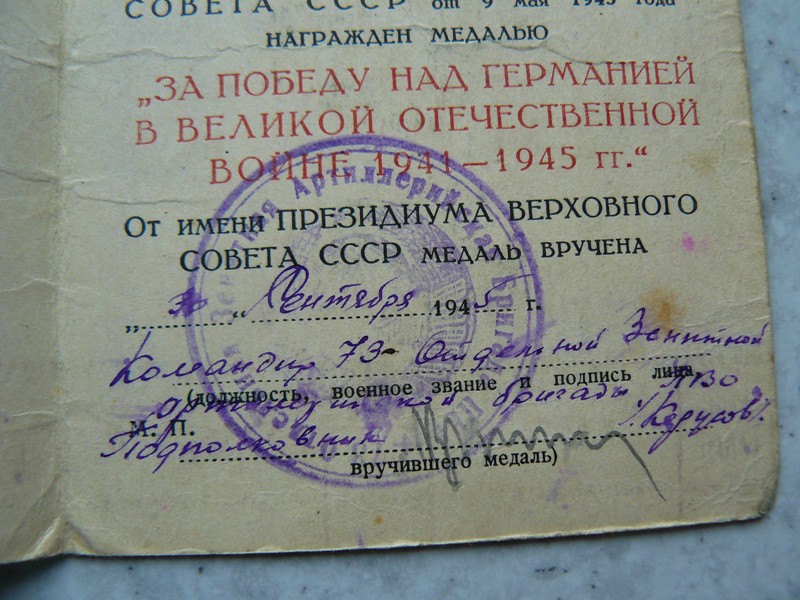 СОВЕТА СССР от 9 мая 1945 года
НАГРАЖДЕН МЕДАЛЬЮ
„ЗА ПОБЕДУ НАД ГЕРМАНИЕЙ
В ВЕЛИКОЙ ОТЕЧЕСТВЕННОЙ
ВОЙНЕ 1941—1945 гг.“
От имени ПРЕЗИДИУМА ВЕРХОВНОГО
СОВЕТА СССР МЕДАЛЬ ВРУЧЕНА
„ “ Сентября 1945 г.
Командир 73 Отдельной Зенитной
(должность, военное звание и подпись лица,
артиллерийской бригады ПВО
М. П.
Подполковник
вручившего медаль)
Зенитная Артиллерийская Бригада